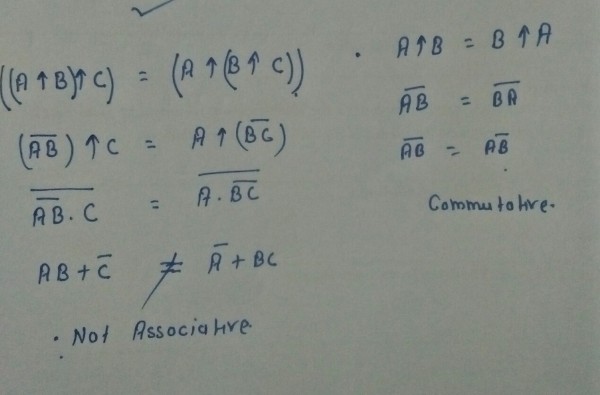 ((A ↑ B) ↑ C) = (A ↑ (B ↑ C))
(A̅B̅) ↑ C = A ↑ (B̅C̅)
\overline{\overline{AB} . C} = \overline{A . \overline{BC}}
AB + C̅ ≠ A̅ + BC
. Not Associative.
. A ↑ B = B ↑ A
\overline{AB} = \overline{BA}
\overline{AB} = \overline{AB}
Commutative.